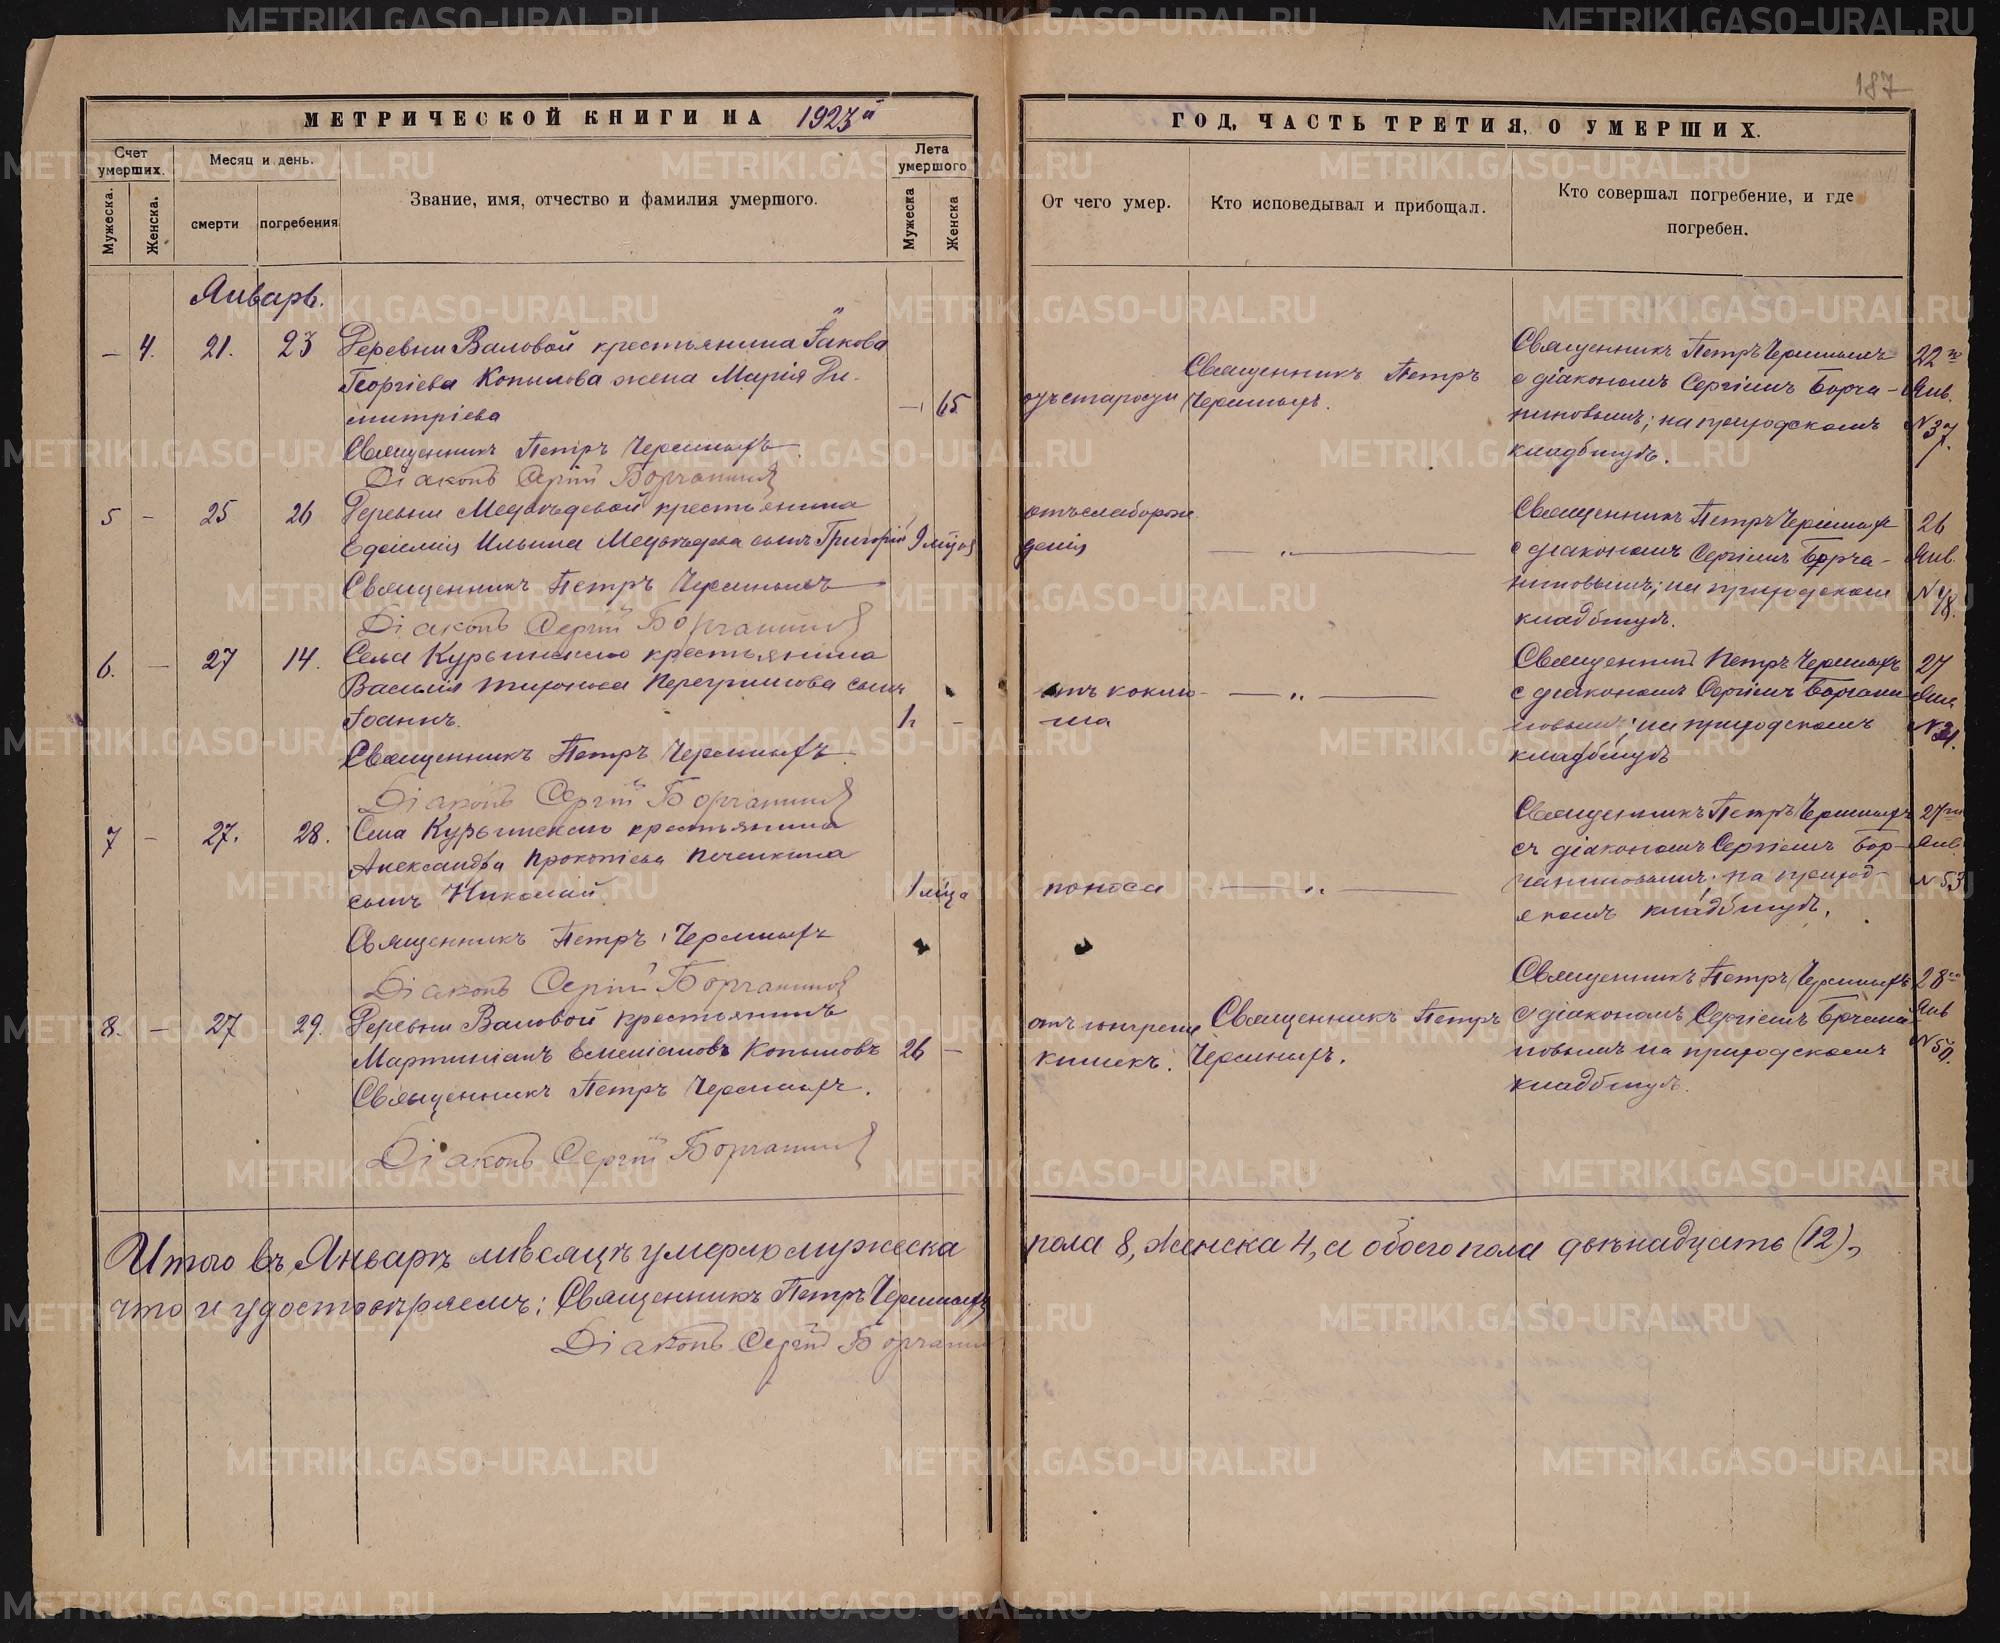 187
МЕТРИЧЕСКОЙ КНИГИ НА 1923й
ГОД, ЧАСТЬ ТРЕТИЯ, О УМЕРШИХ.
Счет умерших.
Мужеска.
Женска.
Месяц и день.
смерти
погребения
Звание, имя, отчество и фамилия умершого.
Лета умершого
Мужеска
Женска
От чего умер.
Кто исповедывал и прибощал.
Кто совершал погребение, и где погребен.
Январь.
— 4. 21. 23 Деревни Валовой крестьянина Iакова
Георгiева Копылова жена Марiя Ди-
митрiева — 65
Священникъ Петръ Черемныхъ.
Дiаконъ Сергiй Борчаниновъ
отъ старости
Священникъ Петръ
Черемныхъ.
Священникъ Петръ Черемныхъ
с дiакономъ Сергiемъ Борча-
ниновымъ; на приходскомъ
кладбищѣ.
22го
Янв.
N 37.
5 — 25 26 Деревни Медвѣдевой крестьянина
Ильина Медвѣдева сынъ Григорiй 9 мѣц.
Священникъ Петръ Черемныхъ
Дiаконъ Сергiй Борчаниновъ
отъ слаборож
денiя
— „ —
Священникъ Петръ Черемных
с дiакономъ Сергiемъ Борча-
ниновымъ; на приходском
кладбищѣ.
26
Янв.
6. — 27 14. Села Курьинскаго крестьянина
Василiя сынъ
Iоаннъ. 1 г —
Священникъ Петръ Черемныхъ.
Дiаконъ Сергiй Борчаниновъ
отъ коклю-
ша
— „ —
Священник Петръ Черемныхъ
с дiакономъ Сергiемъ Борчани
новымъ; на приходскомъ
кладбищѣ
27
Янв.
7 — 27. 28. Села Курьинскаго крестьянина
Александра Прокопiева Печенкина
сынъ Николай. 1 мѣца
Священникъ Петръ Черемныхъ
Дiаконъ Сергiй Борчаниновъ
поноса
— „ —
Священникъ Петръ Черемныхъ
съ дiакономъ Сергiемъ Бор-
чаниновымъ; на приход-
скомъ кладбищѣ.
27го
Янв.
N 53
8. — 27 29. Деревни Валовой крестьянинъ
Мартинiанъ Емелiановъ Копыловъ 26 —
Священникъ Петръ Черемныхъ.
Дiаконъ Сергiй Борчаниновъ
отъ гангрены
кишекъ.
Священникъ Петръ
Черемныхъ.
Священникъ Петръ Черемныхъ
с дiакономъ Сергiемъ Борчани
новымъ на приходскомъ
кладбищѣ.
28го
Янв
Итого въ Январѣ мѣсяцѣ умерло мужеска
пола 8, женска 4, а обоего пола двѣнадцать (12),
что и удостовѣряемъ: Священникъ Петръ Черемныхъ
Дiаконъ Сергiй Борчанин
METRIKI.GASO-URAL.RU